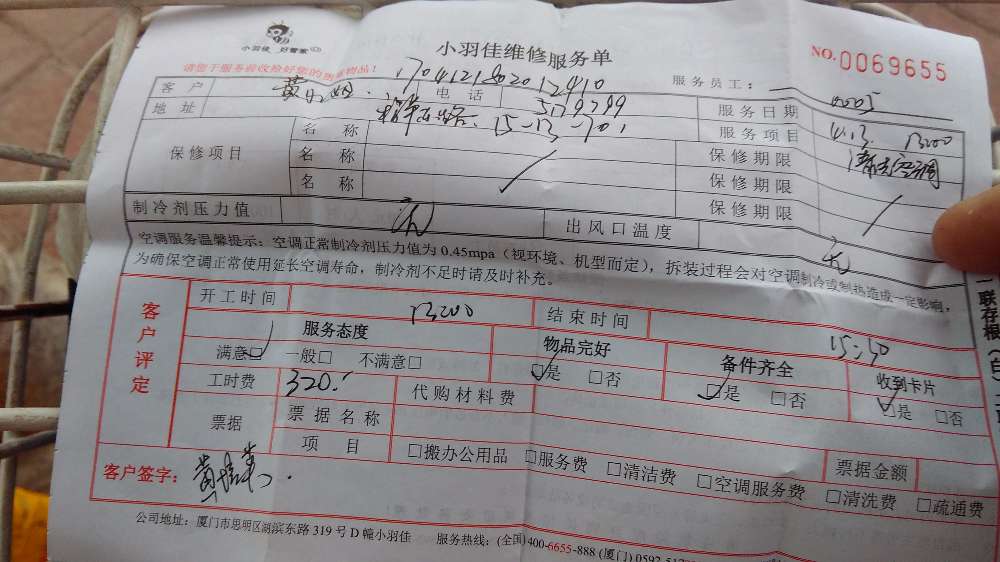 小羽佳 好管家
小羽佳维修服务单
NO.0069655
请您于服务前收捡好您的贵重物品！
服务员工：
客户 电话 5179299 服务日期
地址 15-13-701 服务项目 清洗空调
保修项目 名称 保修期限
名称 保修期限
名称 保修期限
制冷剂压力值 无 出风口温度 无
空调服务温馨提示：空调正常制冷剂压力值为0.45mpa（视环境、机型而定），拆装过程会对空调制冷或制热造成一定影响，
为确保空调正常使用延长空调寿命，制冷剂不足时请及时补充。
客户评定
开工时间 13:00 结束时间 15:30
服务态度 物品完好 备件齐全 收到卡片
满意☑ 一般□ 不满意□ ☑是 □否 ☑是 □否 ☑是 □否
工时费 320. 代购材料费
票据 票据名称
项目 □搬办公用品 □服务费 □清洁费 □空调服务费 □清洗费 □疏通费
票据金额
客户签字：
公司地址：厦门市思明区湖滨东路319号D幢小羽佳 服务热线：(全国)400-6655-888 (厦门)0592-512